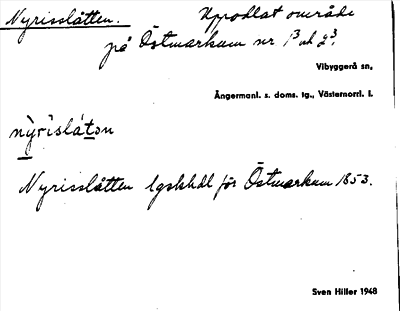 Nyrisslåtten. Uppodlat område
på Östmarkum nr 1³ och 2³.
Vibyggerå sn,
Ångermanl. s. doms. tg., Västernorrl. l.
nỳrìslátən
Nyrisslåtten lgskhdl för Östmarkum 1853.
Sven Hiller 1948